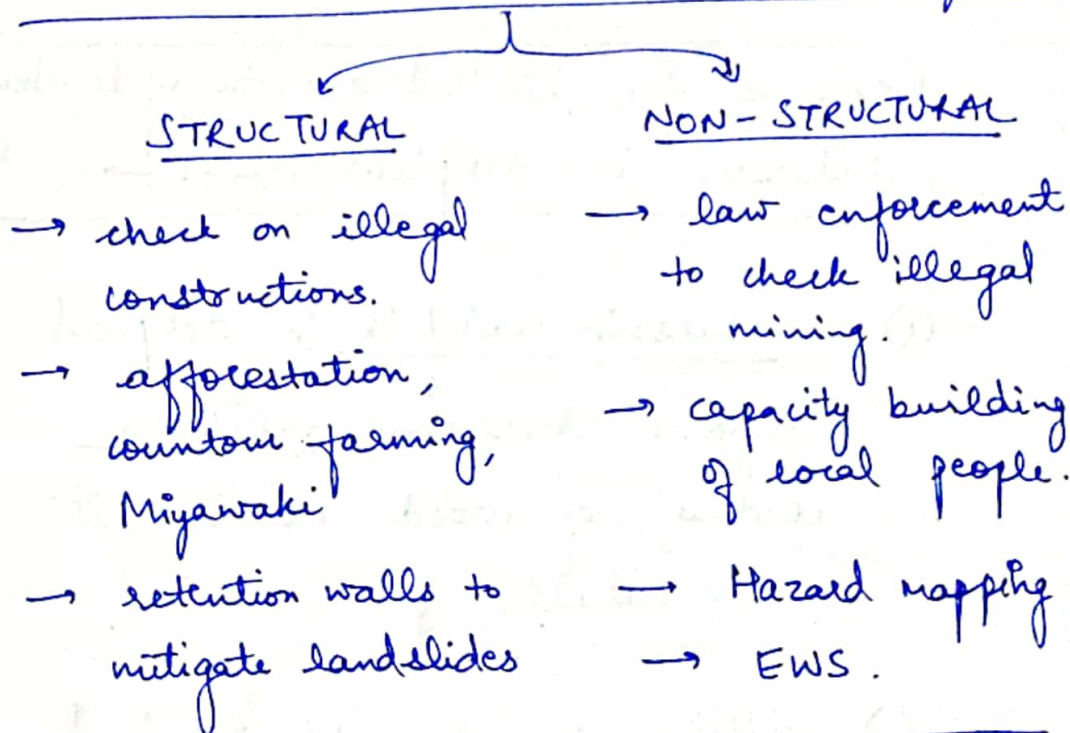 STRUCTURAL
→ check on illegal
constructions.
→ afforestation,
countour farming,
Miyawaki
→ retention walls to
mitigate landslides
NON-STRUCTURAL
→ law enforcement
to check illegal
mining.
→ capacity building
of local people.
→ Hazard mapping
→ EWS.